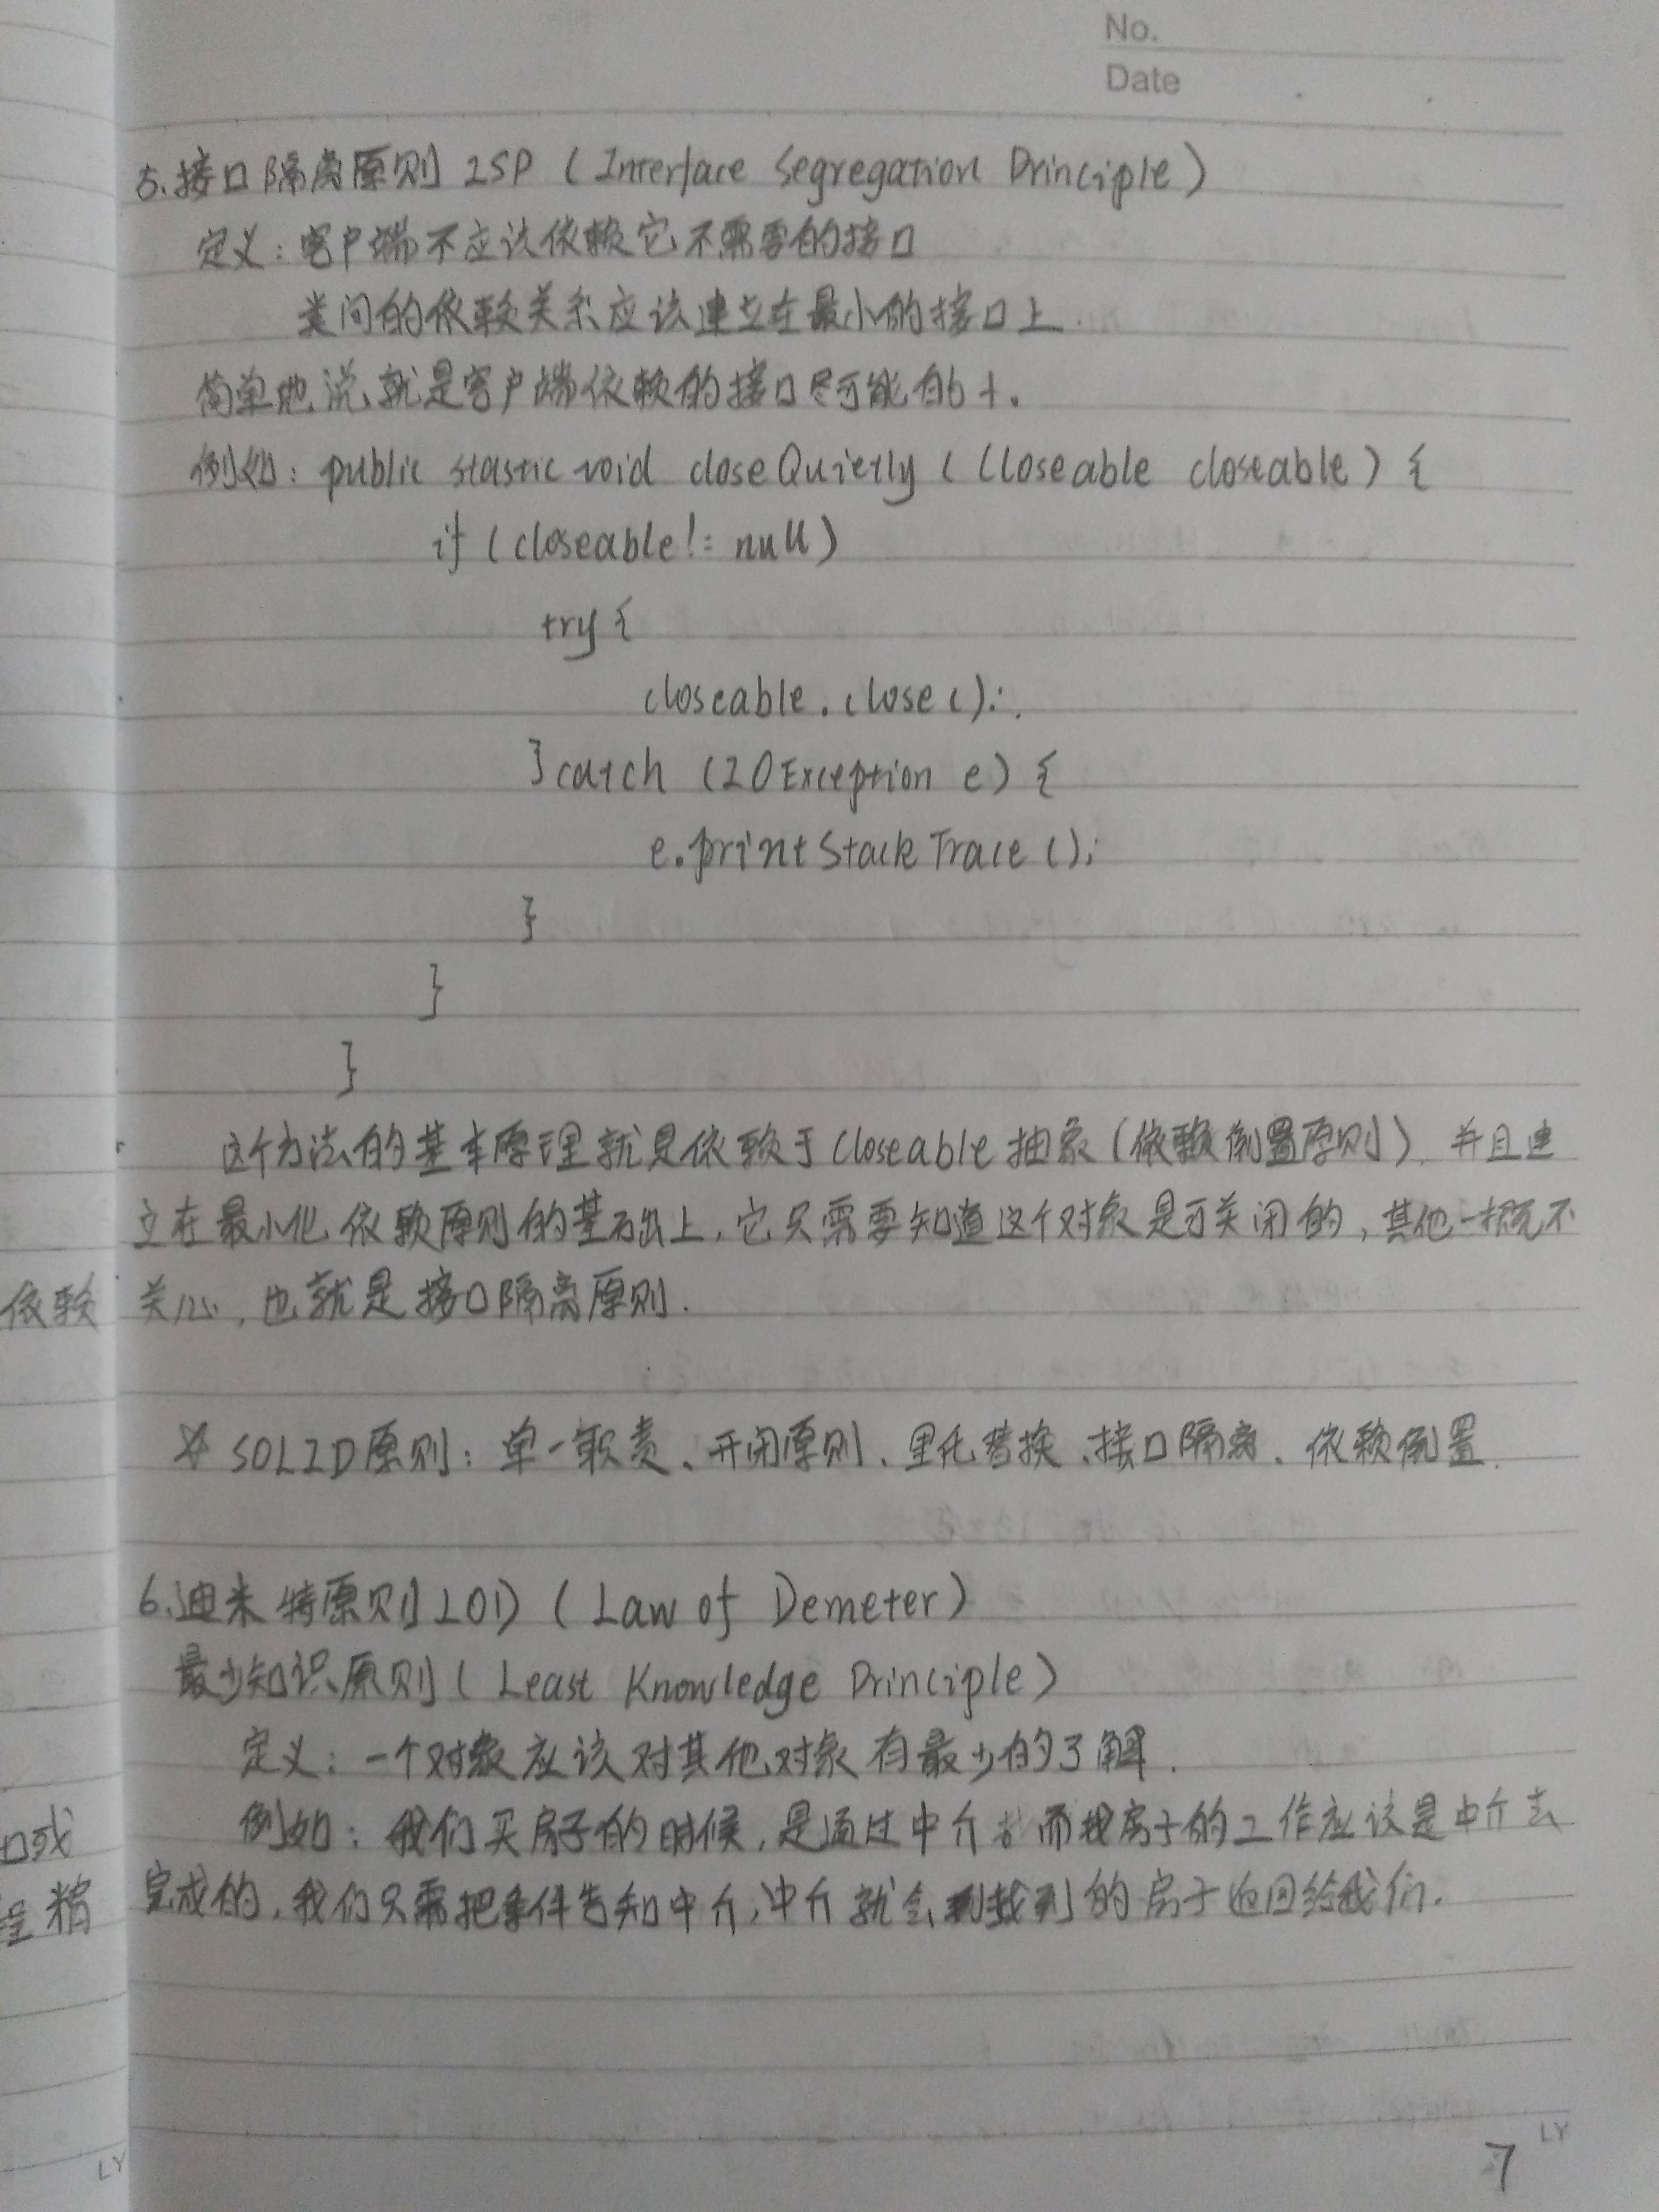 No.
Date
5.接口隔离原则 ISP (Interface Segregation Principle)
定义:客户端不应该依赖它不需要的接口
类间的依赖关系应该建立在最小的接口上.
简单地说,就是客户端依赖的接口尽可能的小.
例如: public stastic void closeQuietly (Closeable closeable) {
if (closeable != null)
try {
closeable.close();
} catch (IOException e) {
e.printStackTrace();
}
}
}
这个方法的基本原理就是依赖于 Closeable 抽象(依赖倒置原则),并且建
立在最小化依赖原则的基础上,它只需要知道这个对象是可关闭的,其他一概不
依赖 关心,也就是接口隔离原则.
☆ SOLID原则: 单一职责、开闭原则、里氏替换、接口隔离、依赖倒置.
6.迪米特原则 LOD (Law of Demeter)
最少知识原则 (Least Knowledge Principle)
定义:一个对象应该对其他对象有最少的了解.
例如:我们买房子的时候,是通过中介,而找房子的工作应该是中介去
口或
完成的,我们只需把条件告知中介,中介就会把找到的房子返回给我们.
程 精
LY
LY
7